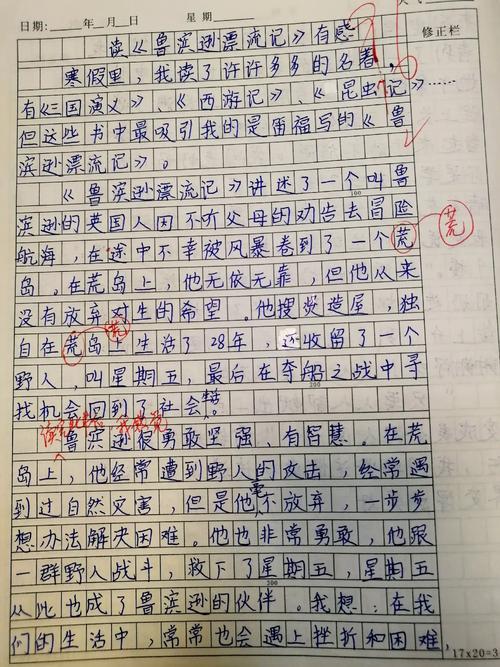 日期：____年__月__日 星期____
修正栏
读《鲁滨逊漂流记》有感
寒假里，我读了许许多多的名著，
有《三国演义》、《西游记》、《昆虫记》……
但这些书中最吸引我的是雷福写的《鲁
滨逊漂流记》。
《鲁滨逊漂流记》讲述了一个叫鲁
100
滨逊的英国人因不听父母的劝告去冒险
航海，在途中不幸被风暴卷到了一个荒
荒
岛。在荒岛上，他无依无靠，但他从来
没有放弃对生的希望。他搜 造屋，独
荒
自在荒岛上生活了28年，还收留了一个
野人，叫星期五，最后在夺船之战中寻
200
找机会回到了社会。
鲁滨逊很勇敢坚强、有智慧。在荒
岛上，他经常遭到野人的攻击，经常遇
到过自然灾害，但是他毫不放弃，一步步
想办法解决困难。他也非常勇敢，他跟
一群野人战斗，救下了星期五，星期五
300
从此也成了鲁滨逊的伙伴。我想：在我
们的生活中，常常也会遇上挫折和困难，
17×20=3